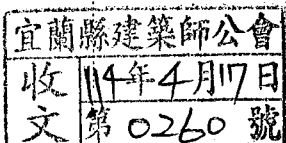 宜蘭縣建築師公會
收文
114年4月17日
第0260號